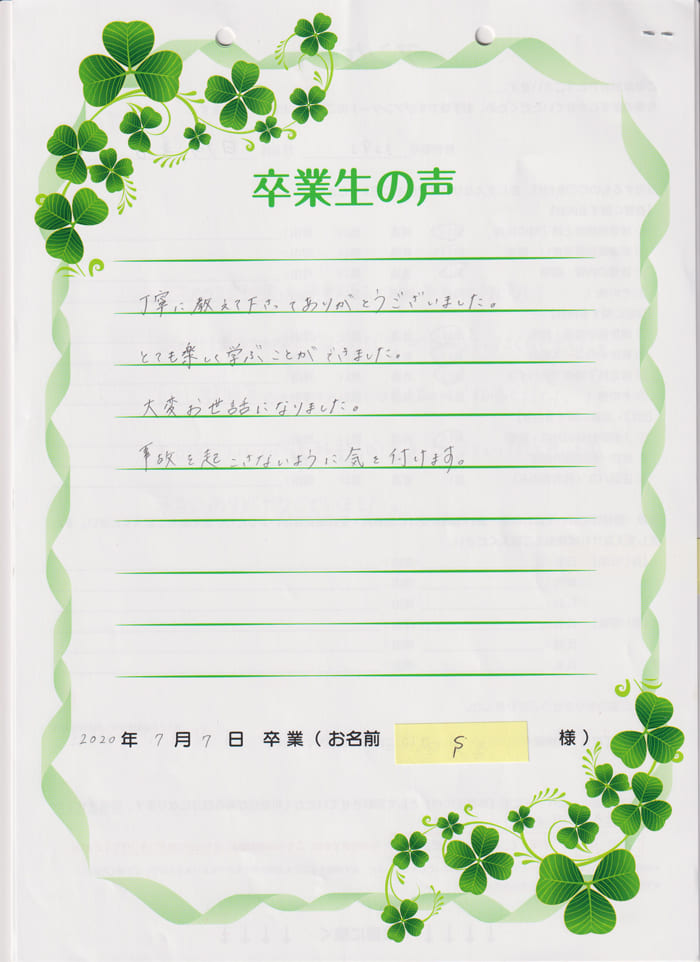 卒業生の声
丁寧に教えて下さってありがとうございました。
とても楽しく学ぶことができました。
大変お世話になりました。
事故を起こさないように気を付けます。
2020年 7月 7日 卒業(お名前 S 様)